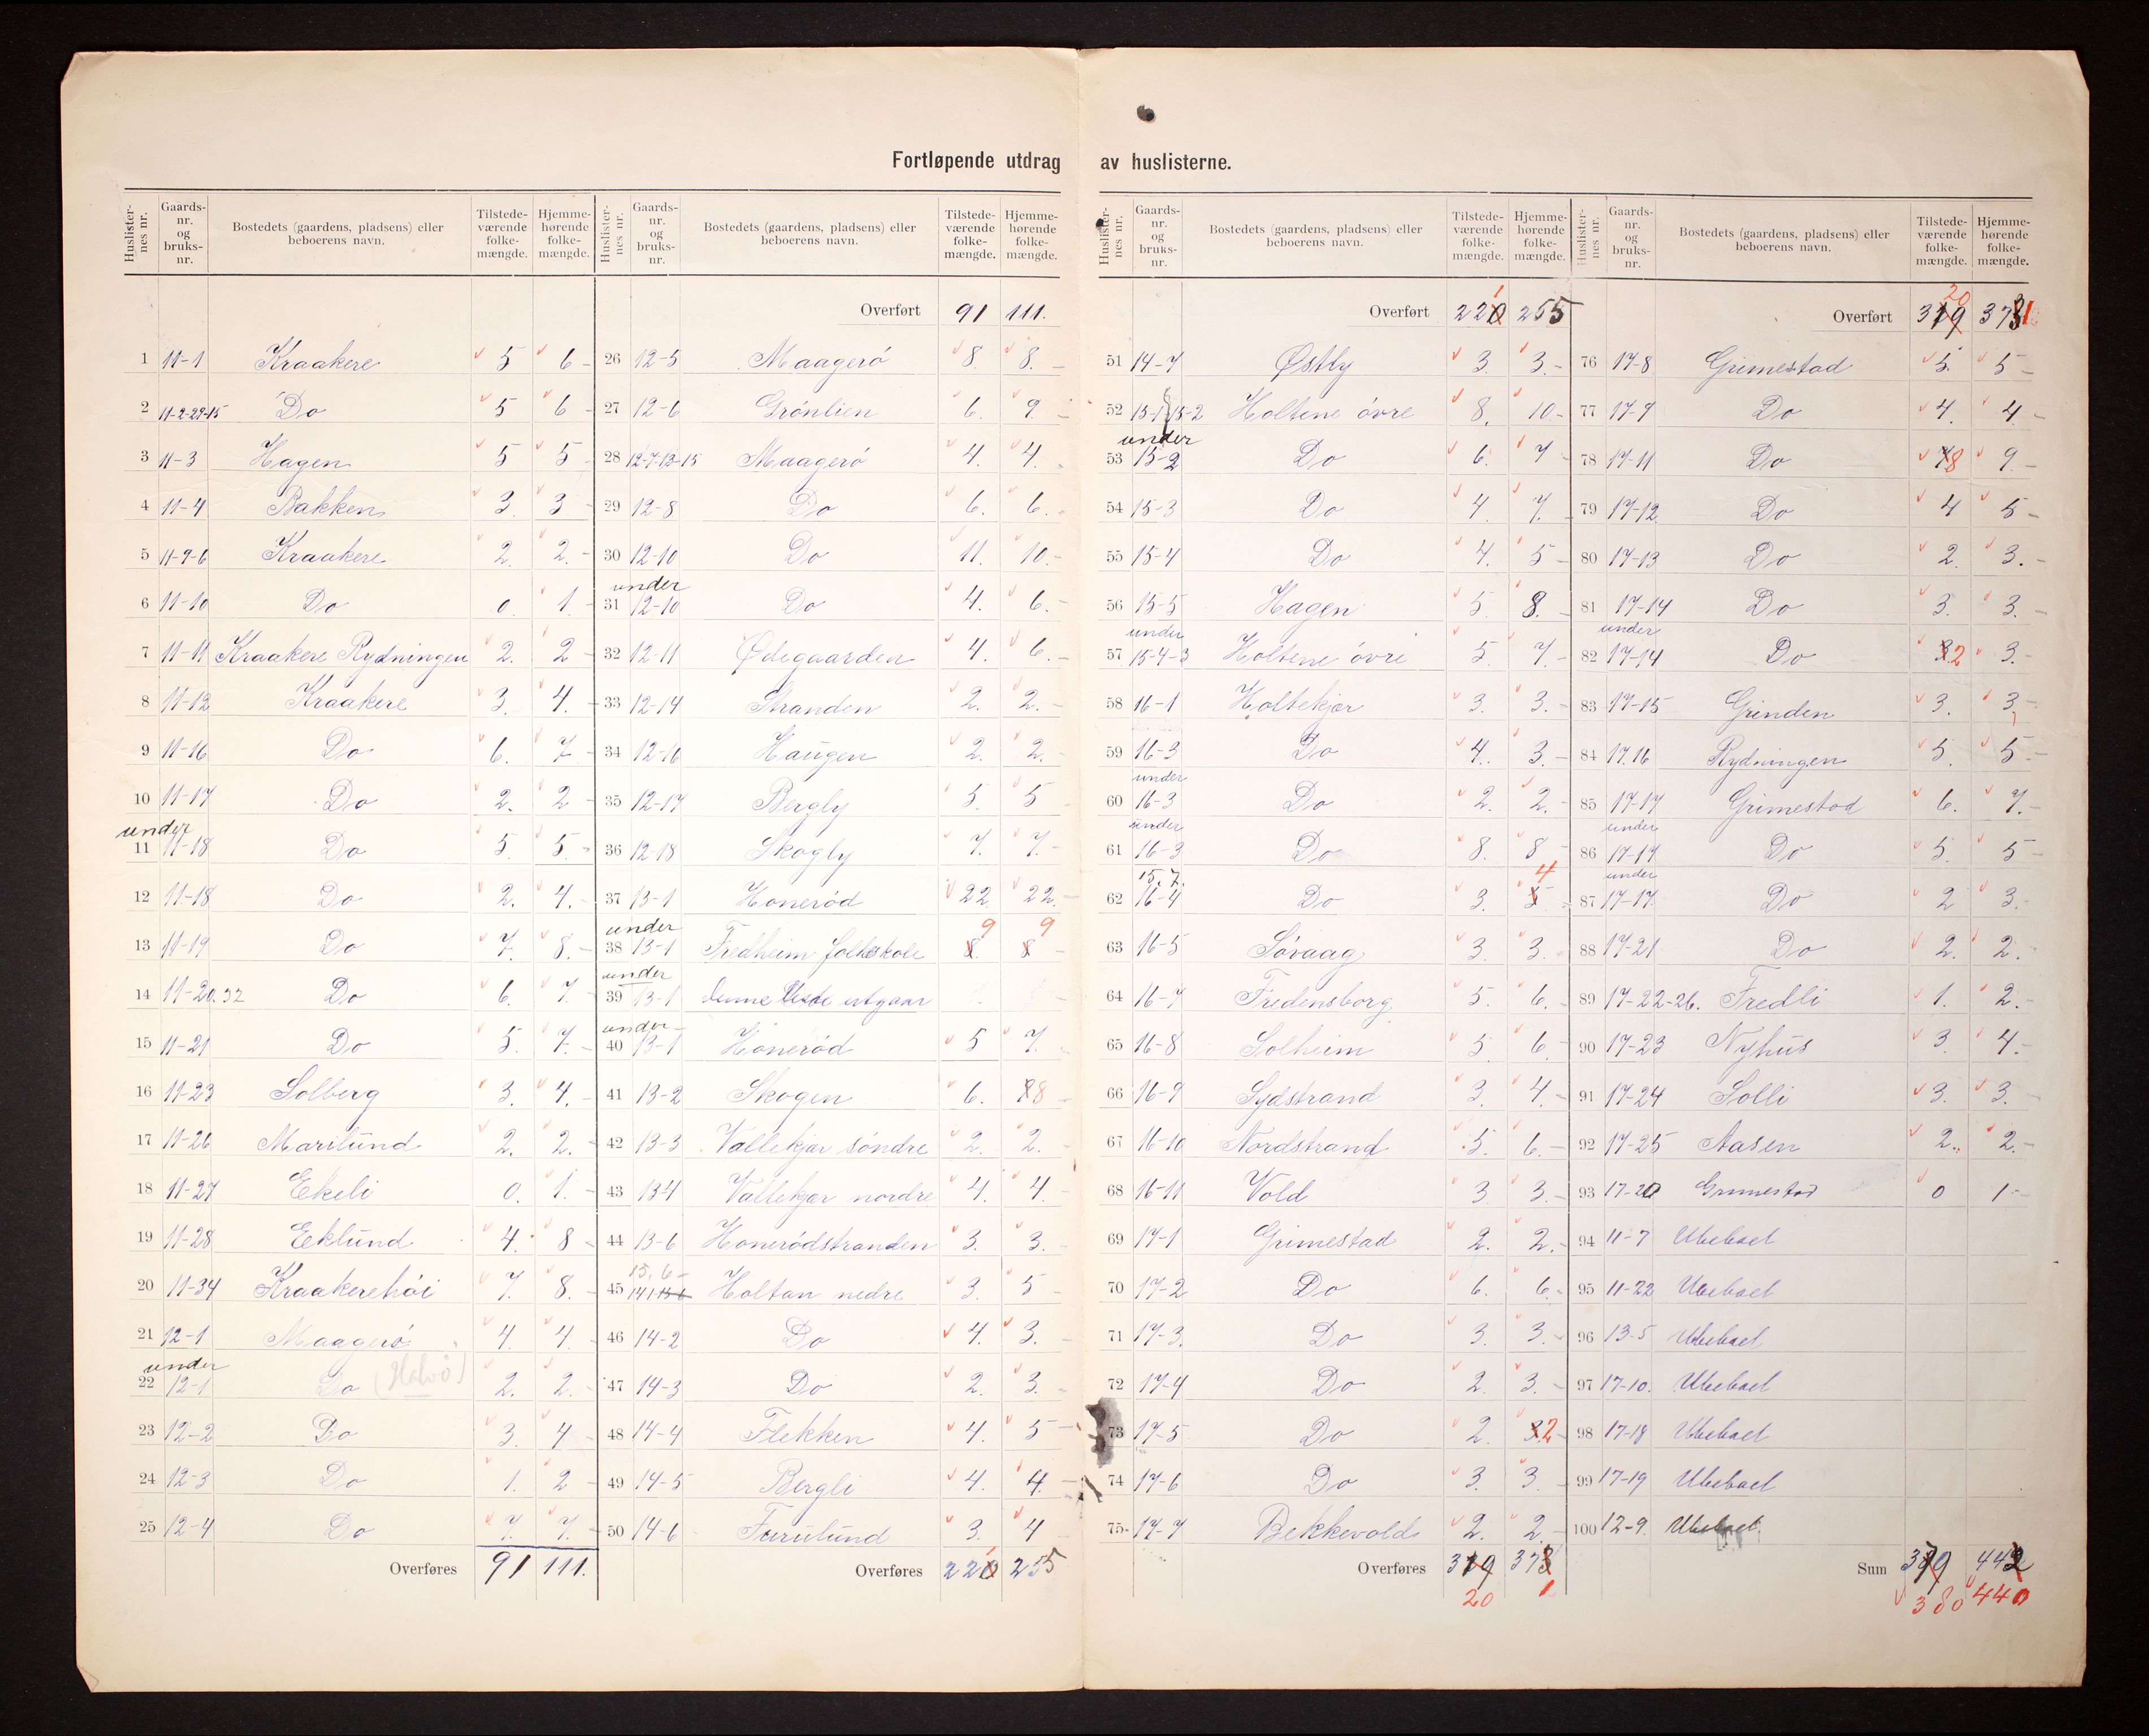 Fortløpende utdrag av huslisterne.
Huslister-nes nr. Gaards-nr. og bruks-nr. Bostedets (gaardens, pladsens) eller beboerens navn. Tilstede-værende folke-mængde. Hjemme-hørende folke-mængde.
1 11-1 Kraakere 5 6
2 11-2-29-15 Do 5 6
3 11-3 Hagen 5 5
4 11-4 Bakken 3 3
5 11-9-6 Kraakere 2 2
6 11-10 Do 0 1
7 11-11 Kraakere Rydningen 2 2
8 11-12 Kraakere 3 4
9 11-16 Do 6 7
10 11-17 Do 2 2
under
11 11-18 Do 5 5
12 11-18 Do 2 4
13 11-19 Do 7 8
14 11-20.32 Do 6 7
15 11-21 Do 5 7
16 11-23 Solberg 3 4
17 11-26 Marilund 2 2
18 11-27 Ekeli 0 1
19 11-28 Eklund 4 8
20 11-34 Kraakerehöi 7 8
21 12-1 Maagerö 4 4
under
22 12-1 Do (Halvö) 2 2
23 12-2 Do 3 4
24 12-3 Do 1 2
25 12-4 Do 7 7
Overføres 91 111.
Huslister-nes nr. Gaards-nr. og bruks-nr. Bostedets (gaardens, pladsens) eller beboerens navn. Tilstede-værende folke-mængde. Hjemme-hørende folke-mængde.
Overført 91 111.
26 12-5 Maagerö 8 8
27 12-6 Grönlien 6 9
28 12-7-13-15 Maagerö 4 4
29 12-8 Do 6 6
30 12-10 Do 11 10
under
31 12-10 Do 4 6
32 12-11 Ødegaarden 4 6
33 12-14 Stranden 2 2
34 12-16 Haugen 2 2
35 12-17 Bergly 5 5
36 12-18 Skogly 7 7
37 13-1 Honeröd 22 22
under 9 9
38 13-1 Fredheim folkeskole 8 8
under
39 13-1 Denne liste utgaar
under
40 13-1 Honeröd 5 7
41 13-2 Skogen 6 8
42 13-3 Vallekjær söndre 2 2
43 13-4 Vallekjær nordre 4 4
44 13-6 Honerödstranden 3 3
15.6
45 14-1 15-6 Holtan nedre 3 5
46 14-2 Do 4 3
47 14-3 Do 2 3
48 14-4 Flekken 4 5
49 14-5 Bergli 4 4
50 14-6 Furulund 3 4
Overføres 220 1 255
Huslister-nes nr. Gaards-nr. og bruks-nr. Bostedets (gaardens, pladsens) eller beboerens navn. Tilstede-værende folke-mængde. Hjemme-hørende folke-mængde.
Overført 220 1 255
51 14-7 Østby 3 3
52 15-1 15-2 Holtene övre 8 10
under
53 15-2 Do 6 7
54 15-3 Do 7 7
55 15-4 Do 4 5
56 15-5 Hagen 5 8
under
57 15-4-3 Holtene övre 5 7
58 16-1 Holtekjær 3 3
59 16-3 Do 4 3
under
60 16-3 Do 2 2
under
61 16-3 Do 8 8
15.7. 4
62 16-4 Do 3 5
63 16-5 Sövaag 3 3
64 16-7 Fredensborg 5 6
65 16-8 Solheim 5 6
66 16-9 Sydstrand 3 4
67 16-10 Nordstrand 5 6
68 16-11 Vold 3 3
69 17-1 Grimestad 2 2
70 17-2 Do 6 6
71 17-3 Do 3 3
72 17-4 Do 2 3
73 17-5 Do 2 3 2
74 17-6 Do 3 3
75 17-7 Bekkevold 2 2
Overføres 319 373
20 1
Huslister-nes nr. Gaards-nr. og bruks-nr. Bostedets (gaardens, pladsens) eller beboerens navn. Tilstede-værende folke-mængde. Hjemme-hørende folke-mængde.
20
Overført 319 373 1
76 17-8 Grimestad 5 5
77 17-9 Do 4 4
78 17-11 Do 7 8 9
79 17-12 Do 4 5
80 17-13 Do 2 3
81 17-14 Do 3 3
under
82 17-14 Do 3 2 3
83 17-15 Grinden 3 3
84 17.16 Rydningen 5 5
85 17-17 Grimestad 6 7
under
86 17-17 Do 5 5
under
87 17-17 Do 2 3
88 17-21 Do 2 2
89 17-22-26. Fredli 1 2
90 17-23 Nyhus 3 4
91 17-24 Solli 3 3
92 17-25 Aasen 2 2
93 17-20 Grimestad 0 1
94 11-7 Ubeboet
95 11-22 Ubeboet
96 13-5 Ubeboet
97 17-10. Ubeboet
98 17-18 Ubeboet
99 17-19 Ubeboet
100 12-9. Ubeboet.
Sum 379 442
380 440